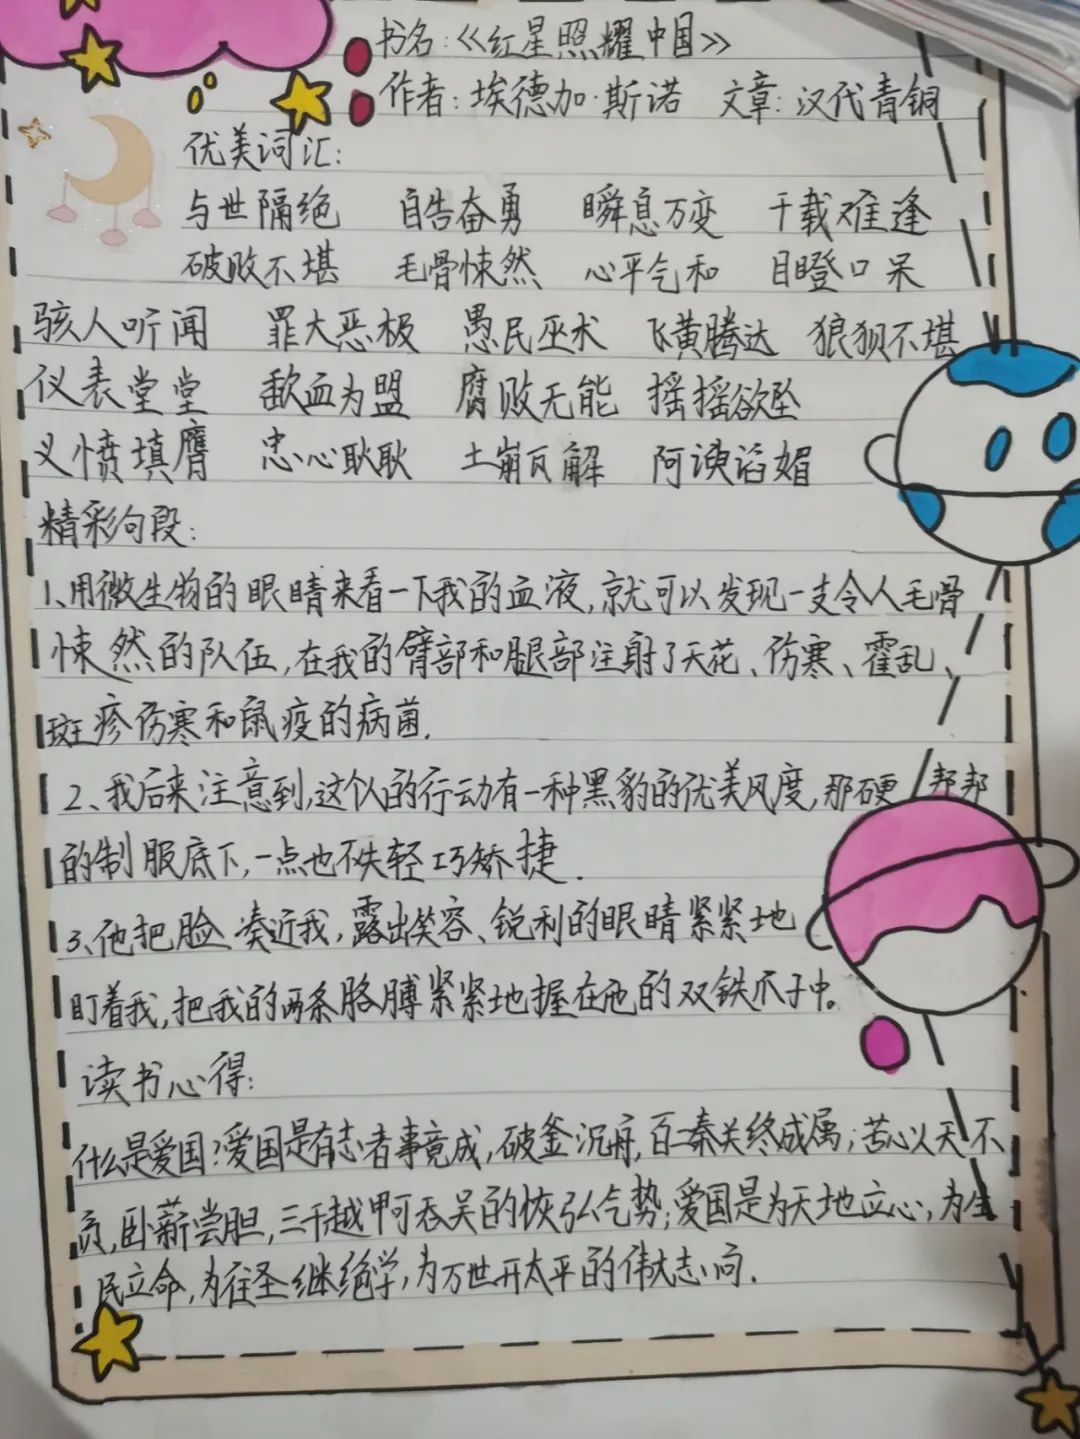 书名:《红星照耀中国》
作者:埃德加·斯诺 文章:汉代青铜
优美词汇:
与世隔绝 自告奋勇 瞬息万变 千载难逢
破败不堪 毛骨悚然 心平气和 目瞪口呆
骇人听闻 罪大恶极 愚民巫术 飞黄腾达 狼狈不堪
仪表堂堂 歃血为盟 腐败无能 摇摇欲坠
义愤填膺 忠心耿耿 土崩瓦解 阿谀谄媚
精彩句段:
1、用微生物的眼睛来看一下我的血液,就可以发现一支令人毛骨
悚然的队伍,在我的臂部和腿部注射了天花、伤寒、霍乱、
斑疹伤寒和鼠疫的病菌.
2、我后来注意到,这个人的行动有一种黑豹的优美风度,那硬邦邦
的制服底下,一点也不失轻巧矫捷.
3、他把脸凑近我,露出笑容、锐利的眼睛紧紧地
盯着我,把我的两条胳膊紧紧地握在他的双铁爪子中。
读书心得:
什么是爱国?爱国是有志者事竟成,破釜沉舟,百二秦关终成属;苦心以天不
负,卧薪尝胆,三千越甲可吞吴的恢弘气势;爱国是为天地立心,为生
民立命,为往圣继绝学,为万世开太平的伟大志向.